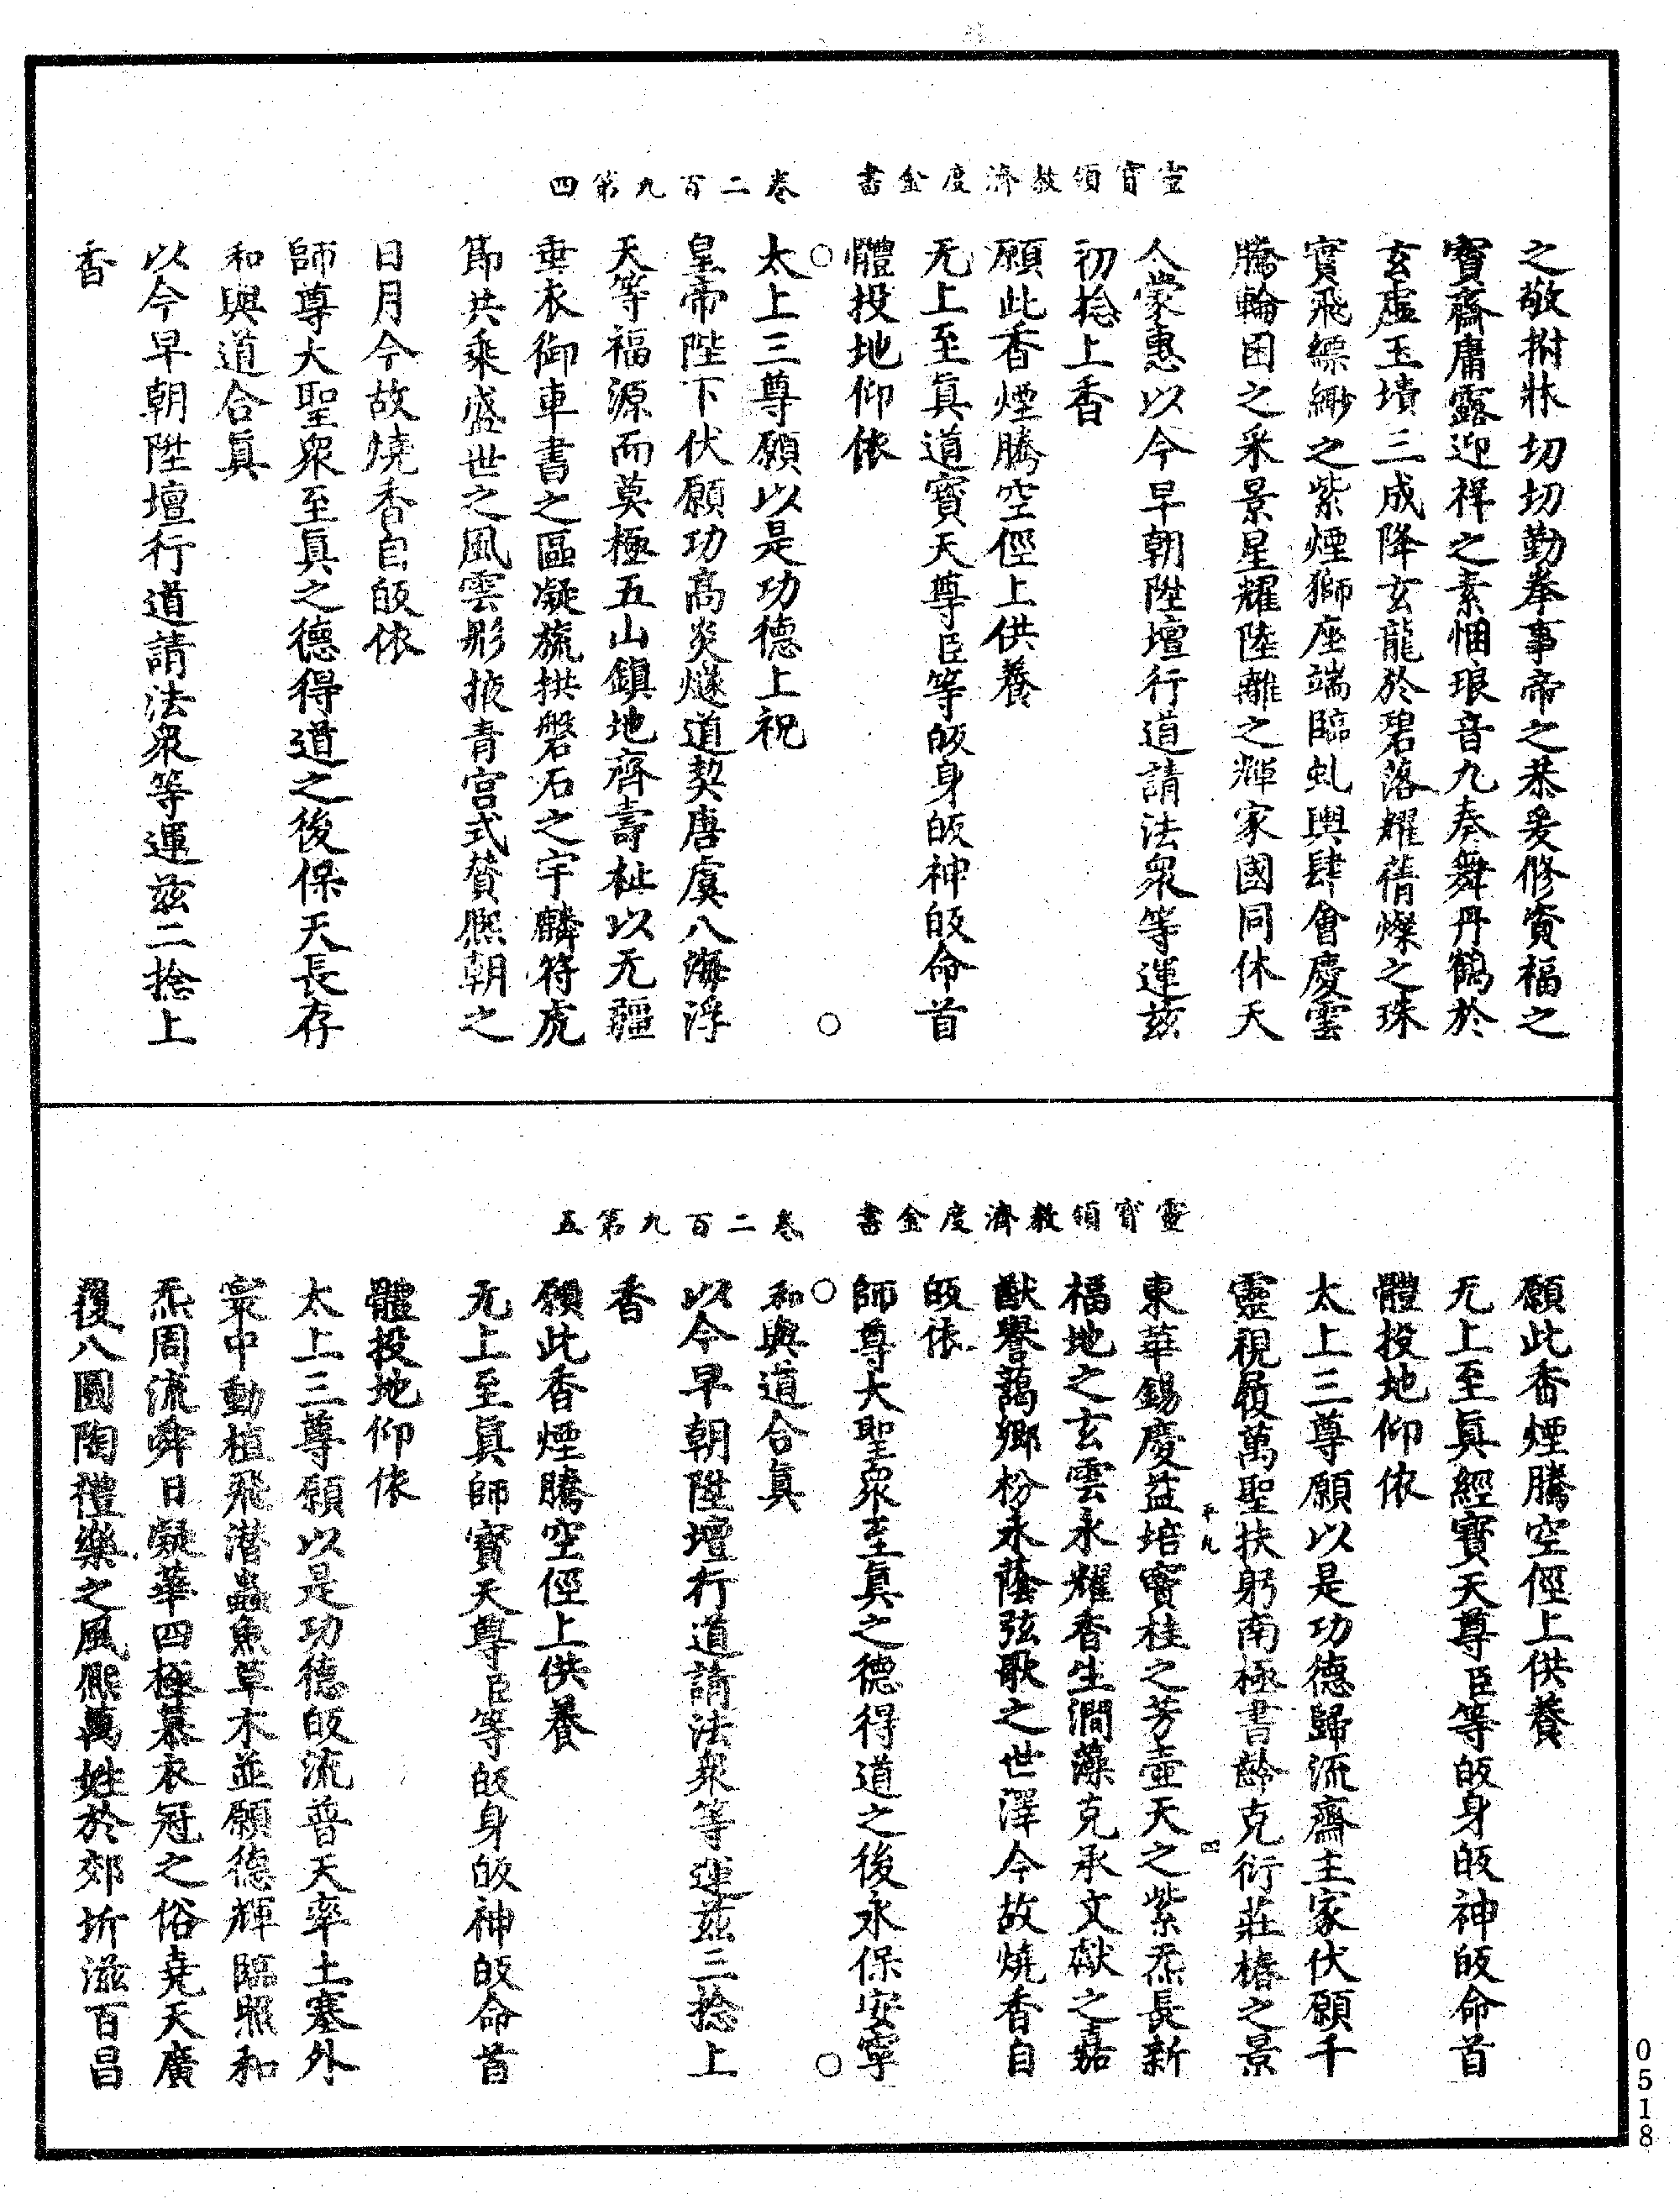 靈寶領教濟度金書　卷二百九第四
之敬拊牀切切勤拳事帝之恭爰修賓福之
寶齋庸露迎祥之素悃琅音九奏舞丹鶴於
玄虛玉墳三成降玄龍於碧落耀蒨燦之珠
實飛縹緲之紫煙獅座端臨虬輿肆會慶雲
騰輪囷之采景星耀陸離之輝家國同休天
人蒙惠以今早朝陞壇行道請法眾等運茲
初捻上香
願此香煙騰空徑上供養
无上至真道寶天尊臣等皈身皈神皈命首
體投地仰依
太上三尊願以是功德上祝
皇帝陛下伏願功高炎燧道契唐虞八海浮
天等福源而莫極五山鎮地齊壽祉以无疆
垂衣御車書之區凝旒拱磐石之宇麟符虎
節共乘盛世之風雲彤掖青宮式贊熙朝之
日月今故燒香自皈依
師尊大聖眾至真之德得道之後保天長存
和與道合真
以今早朝陞壇行道請法眾等運茲二捻上
香
靈寶領教濟度金書　卷二百九第五
願此香煙騰空徑上供養
无上至真經寶天尊臣等皈身皈神皈命首
體投地仰依
太上三尊願以是功德歸流齋主家伏願千
靈視履萬聖扶躬南極書齡克衍莊椿之景
東華錫慶益培竇桂之芳壺天之紫炁長新
福地之玄雲永耀香生澗藻克承文獻之嘉
猷譽藹鄉枌永蔭弦歌之世澤今故燒香自
皈依
師尊大聖眾至真之德得道之後永保安寧
和與道合真
以今早朝陞壇行道請法眾等運茲三捻上
香
願此香煙騰空徑上供養
无上至真師寶天尊臣等皈身皈神皈命首
體投地仰依
太上三尊願以是功德皈流普天率土塞外
寰中動植飛潛蟲魚草木並願德輝臨照和
炁周流舜日凝華四極慕衣冠之俗堯天廣
覆八圜陶禮樂之風熙萬姓於郊圻滋百昌
0518